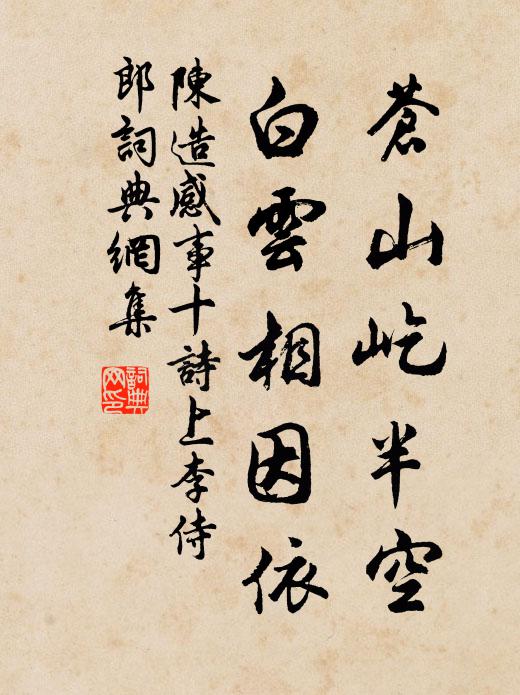 蒼山屹半空
白雲相因依
陳造感事十詩上李侍
郎詞典網集
詞典
网印